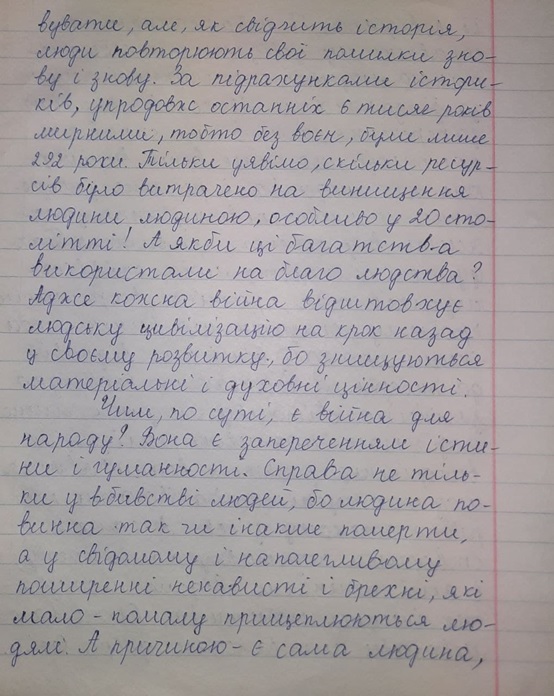 вувати, але, як свідчить історія,
люди повторюють свої помилки зно-
ву і знову. За підрахунками істори-
ків, упродовж останніх 6 тисяч років
мирними, тобто без воєн, були лише
292 роки. Тільки уявімо, скільки ресур-
сів було витрачено на винищення
людини людиною, особливо у 20 сто-
літті! А якби ці багатства
використали на благо людства?
Адже кожна війна відштовхує
людську цивілізацію на крок назад
у своєму розвитку, бо знищуються
матеріальні і духовні цінності.
Чим, по суті, є війна для
народу? Вона є запереченням істи-
ни і гуманності. Справа не тіль-
ки у вбивстві людей, бо людина по-
винна так чи інакше померти,
а у свідомому і наполегливому
поширенні ненависті і брехні, які
мало-помалу прищеплюються лю-
дям. А причиною - є сама людина,